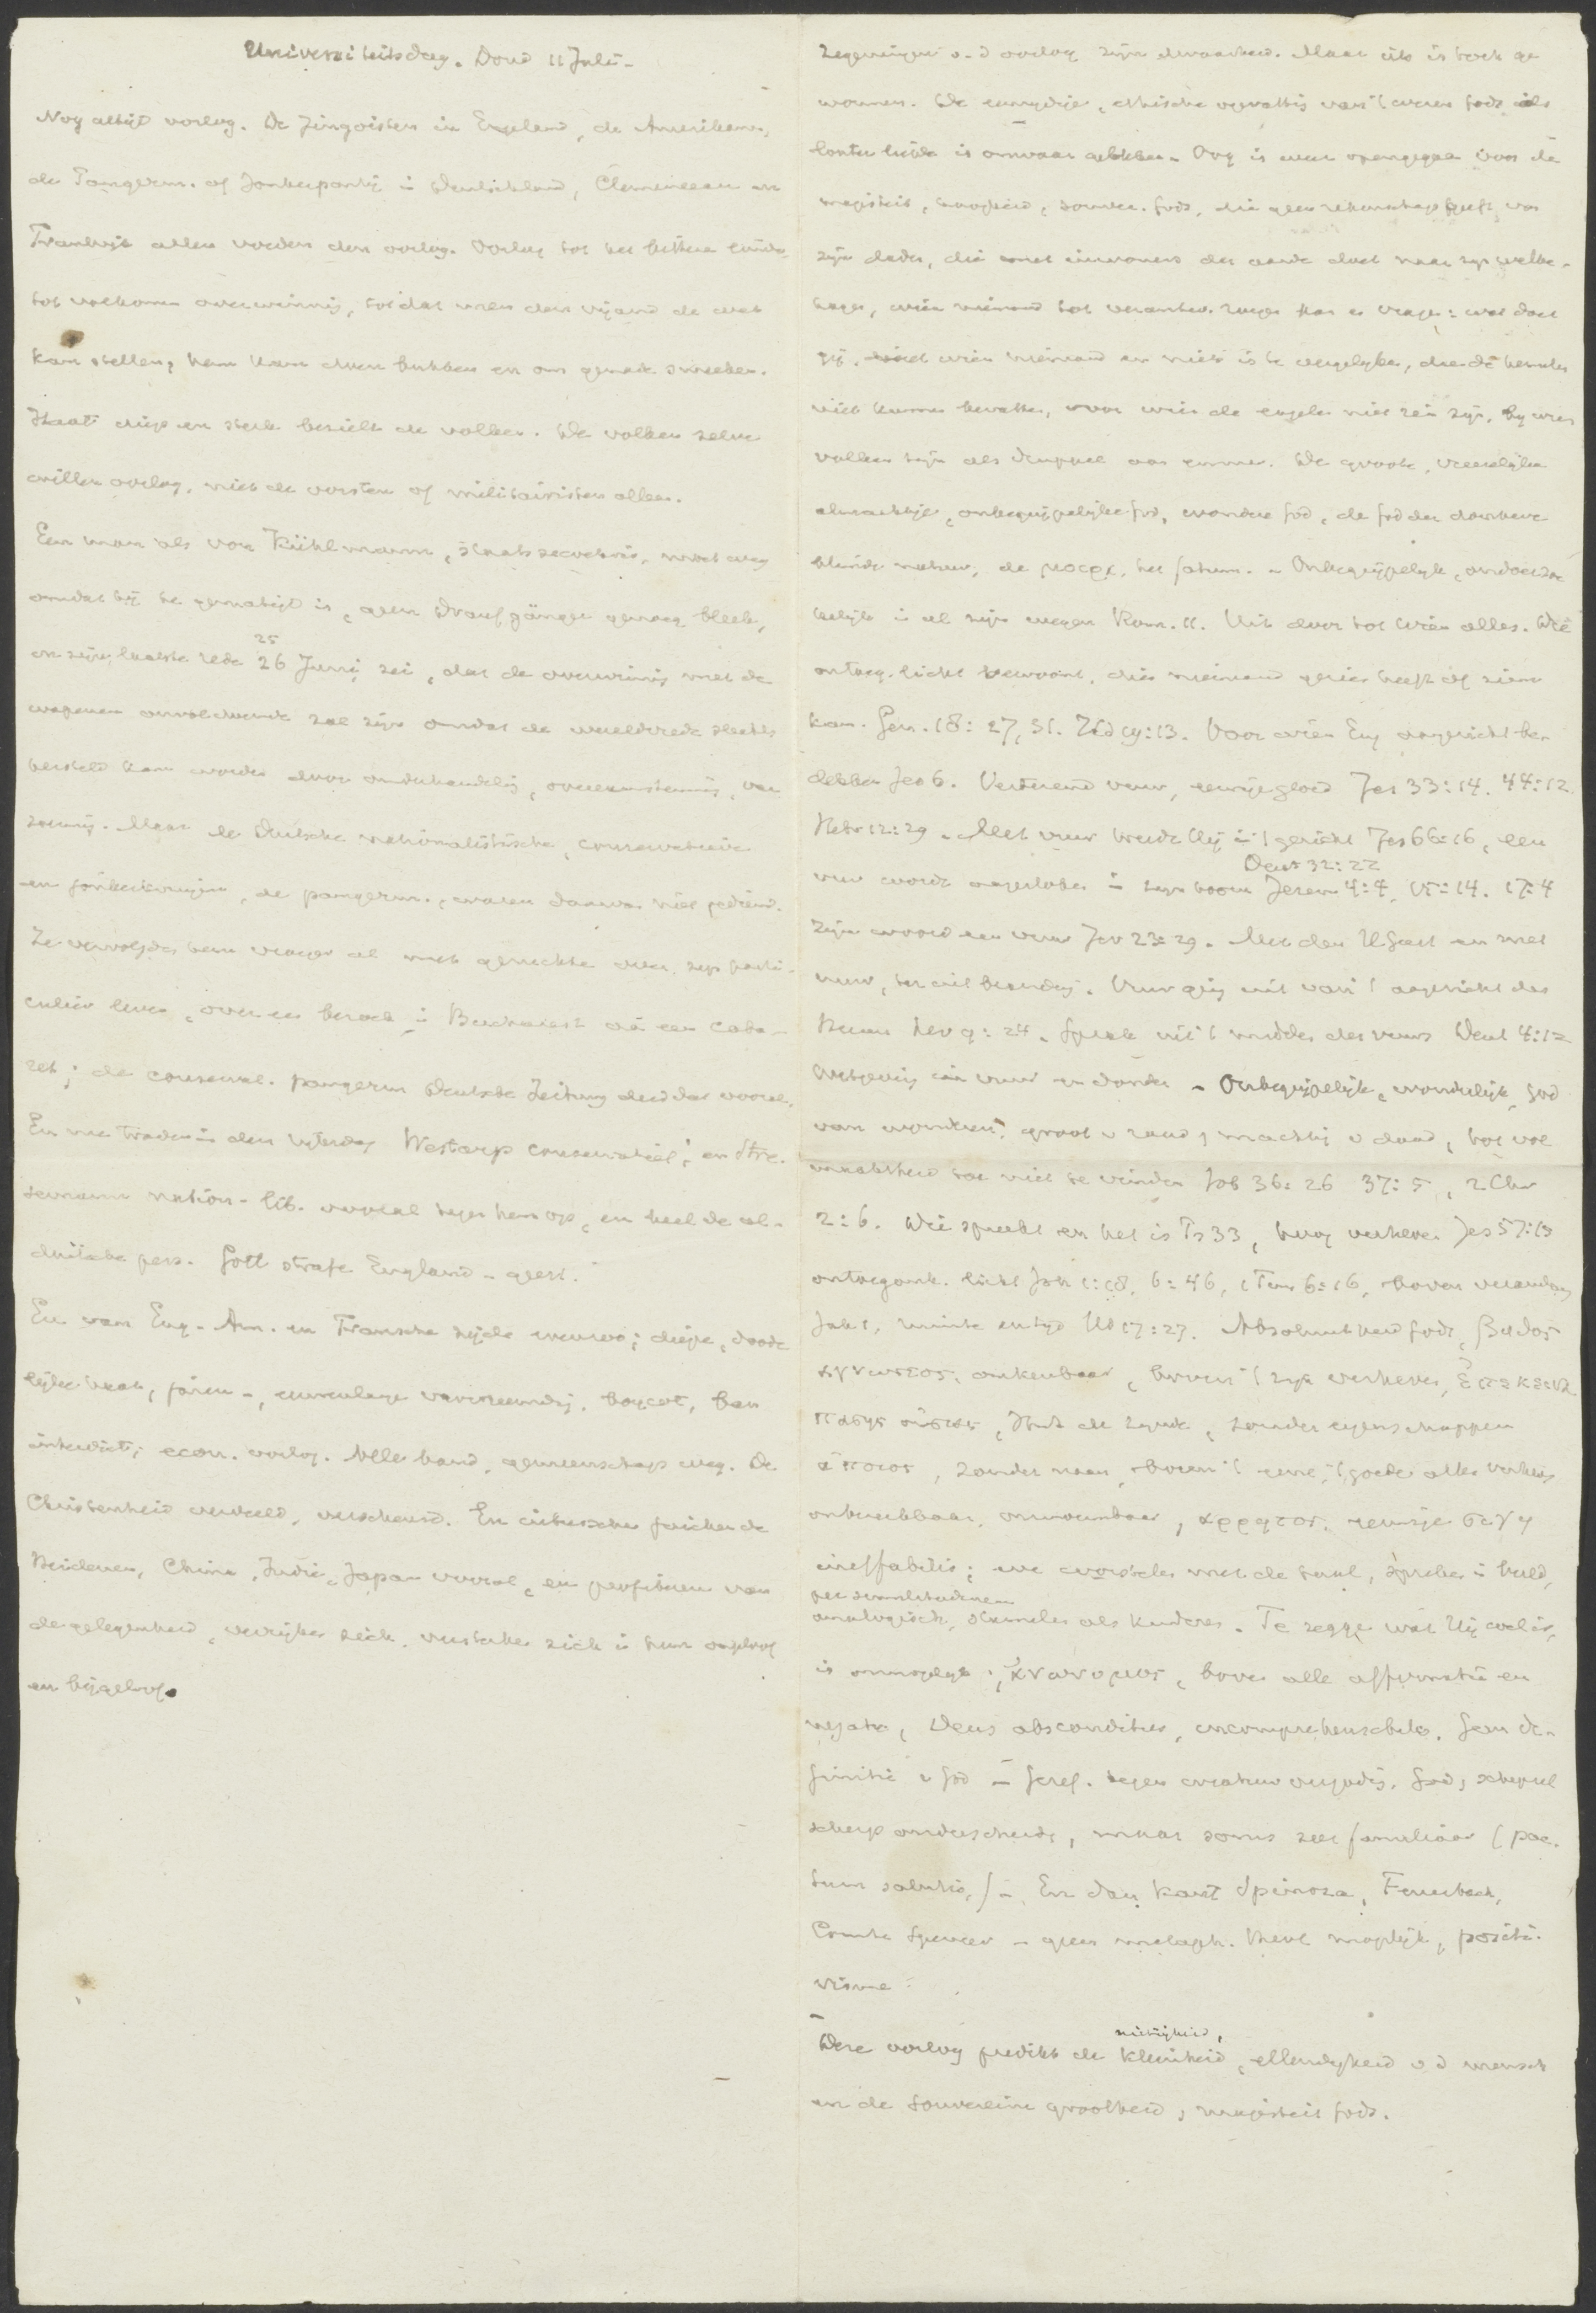 Universiteitsdag. Dond 11 Juli -
Nog altijd oorlog. De Jingoisten in Engeland, de Amerikanen,
de Pangerm. of Jonkerpartij in Duitschland, Clemenceau in
Frankrijk allen voeden den oorlog. Oorlog tot het bittere einde,
tot volkomen overwinning, totdat men den vijand de wet
kan stellen, hem kan doen bukken en om genade smeeken.
Haat diep en sterk bezielt de volken. De volken zelve
willen oorlog, niet de vorsten of militairisten alleen.
Een man als von Kühlmann, staatssecretaris, moet weg
omdat hij te gematigd is, geen Draufgänger genoeg bleek,
25
en in zijn laatste rede 26 Junij zei, dat de overwinning met de
wapenen onvoldoende zal zijn omdat de wereldvrede slechts
hersteld kan worden door onderhandeling, overeenstemming, ver
zoening. Maar de Duitsche nationalistische, conservatieve
en jonkerkringen, de pangerm., waren daarvan niet gediend.
Ze vervolgden hem vroeger al met geruchten over zijn parti-
culier leven, over een bezoek in Bucharest aan een caba-
ret; de conserv. pangerm Deutsche Zeitung deed dat vooral.
En nu traden in den Rijksdag Westarp conservatief, en Stre-
semann nation-lib. vooral tegen hem op, en heel de al-
duitsche pers. Gott strafe England - geest.
En van Eng-Am. en Fransche zijde evenzo; diepe, doode
lijke haat, jaren-, eeuwenlange vervreemding, boycot, ban
interdict; econ. oorlog. Alle band, gemeenschap weg. De
Christenheid verdeeld, verscheurd. En intusschen juichen de
Heidenen, China, Indië, Japan vooral, en profiteren van
de gelegenheid, verrijken zich, versterken zich in hun ongeloof
en bijgeloof.
zegeningen v. d oorlog zijn dwaasheid. Maar iets is toch ge
wonnen. De eenzydige, ethische opvatting van 't wezen Gods als
louter liefde is onwaar gebleken. Oog is weer opengegaan voor de
majesteit, hoogheid, souver. Gods, die geen rekenschap geeft van
zijn daden, die met inwoners der aarde doet naar zijn welbe-
hagen, wien niemand tot verantw. roepen kan en vragen: wat doet
gij. met wien niemand en niets is te vergelijken, dien de hemelen
niet kunnen bevatten, voor wien de engelen niet rein zijn, bij wien
volken zijn als druppel aan emmer. De groote, vreeselijke
almachtige, onbegrijpelijke God, wondere God, de God der donkere
blinde natuur, de μοιρα, het fatum. - Onbegrijpelijk, ondoorzoe
kelijk in al zijn wegen Rom. 11. Uit door tot wien alles. Die
ontoeg. licht bewoont, dien niemand gezien heeft of zien
kan. Gen. 18: 27, 31. 19:13. Voor wien Eng aangezicht be-
dekken Jes 6. Verterend vuur, eeuwige gloed Jes 33:14. 44:12
Hebr 12:29. Met vuur treedt Hij in 't gericht Jes 66:16, een
Deut 32:22
vuur wordt aangestoken in zijn toorn Jerem 4:4, 15:14. 17:4
Zijn woord een vuur Jer 23:29. Met den H Geest en met
vuur, Vuur ging uit van 't aangezicht des
Heeren Lev 9:24. Sprak uit 't midden des vuurs Deut 4:12
Wetgeving in vuur en donder - Onbegrijpelijk, wonderlijk, God
van wonderen, groot v raad, machtig v daad, tot vol
maaktheid toe niet te vinden Job 36:26 37:5, 2 Chr
2:6. Wie spreekt en het is Ps 33, hoog verheven Jes 57:15
ontoegank. licht Joh 1:18, 6:46, 1 Tim 6:16, boven verandering
Jak 1, ruimte en tijd 17:27. Absoluutheid Gods, βυθος
αγνωστος, onkenbaar, boven 't zijn verheven, ἐπεκεινα
πασης οὐσιας, zonder eigenschappen
ἀποιος, zonder naam, boven 't eene, 't goede alles verheven
onbereikbaar, onnoembaar, αρρητος, eeuwige σιγη
ineffabilis; we worstelen met de taal, spreken in beeld,
analogisch, stamelen als kinderen. Te zeggen wat Hij wel is,
is onmogelijk; ἀνωνυμος, boven alle affirmatie en
negatie, Deus absconditus, incomprehensibilis. Geen de-
finitie v God - Geref. tegen creatuurvergoding. God, schepsel
scherp onderscheidt, maar soms zeer familiaar (pac-
tum salutis.) - En dan Kant Spinoza, Feuerbach,
Comte Spencer - geen metaph. meer mogelijk, positi-
visme.
nietigheid,
Deze oorlog predikt de kleinheid, ellendigheid v d mensch
en de souvereine grootheid, majesteit Gods.